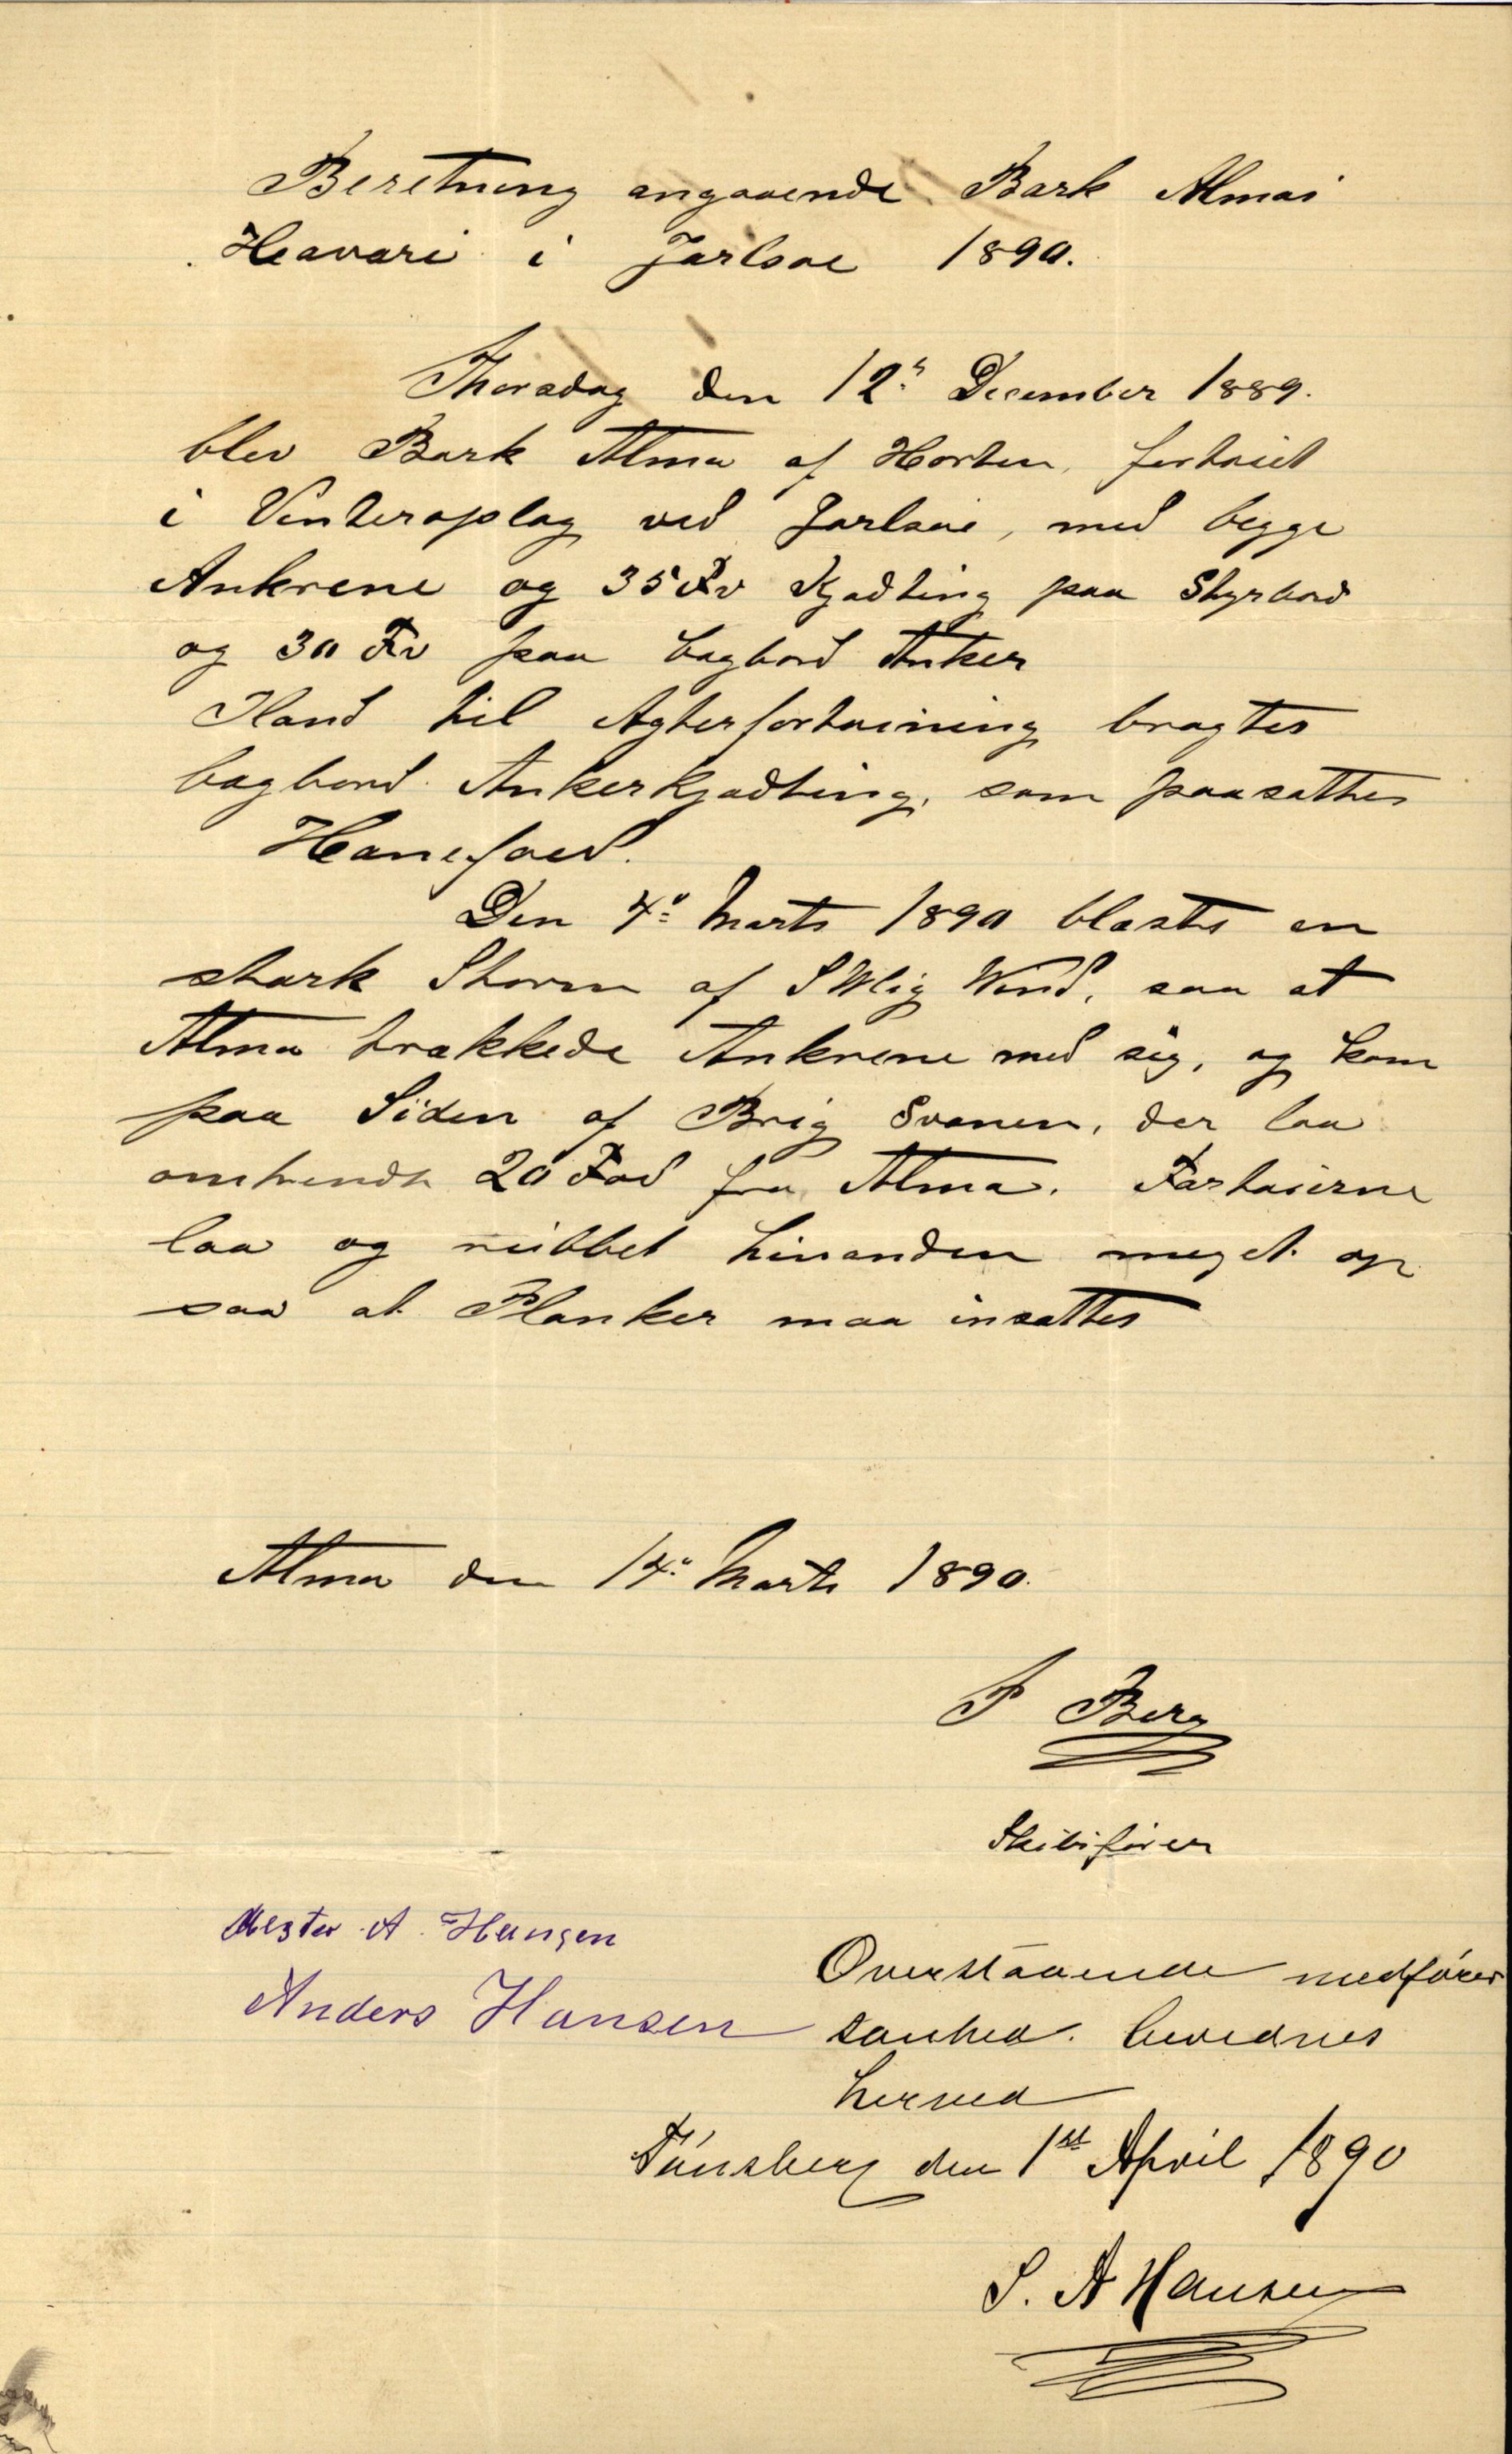 Beretning angaaende Bark Almas
Heavari i Jarlsøe 1890.
Thorsdag den 12te December 1889.
blev Bark Alma af Horten, fortøiet
i Vinteroplag ved Jarlsøe, med begge
Ankrene og 35 Fv Kjætting paa Styrbord
og 30 Fv paa bagbord Anker
Iland til Agterfortøining bragtes
bagbord Ankerkjætting, som paasattes
Hanefoed.
Den 4de Marts 1890 blæstes en
stærk Storm af SWlig Vind, saa at
Alma trækkede Ankrene med sig, og kom
paa Siden af Brig Svanen, der laa
omtrendt 20 Fod fra Alma. Fartøierne
laa og rubbet hinanden meget op
saa at Planker maa insættes
Alma den 14de Marts 1890.
P Berg
Skibsfører
Mester A. Hansen
Anders Hansen
Overstaaende medfører
sanhed. bevidnes
herved
Tønsberg den 1st April 1890
S. A Hansen